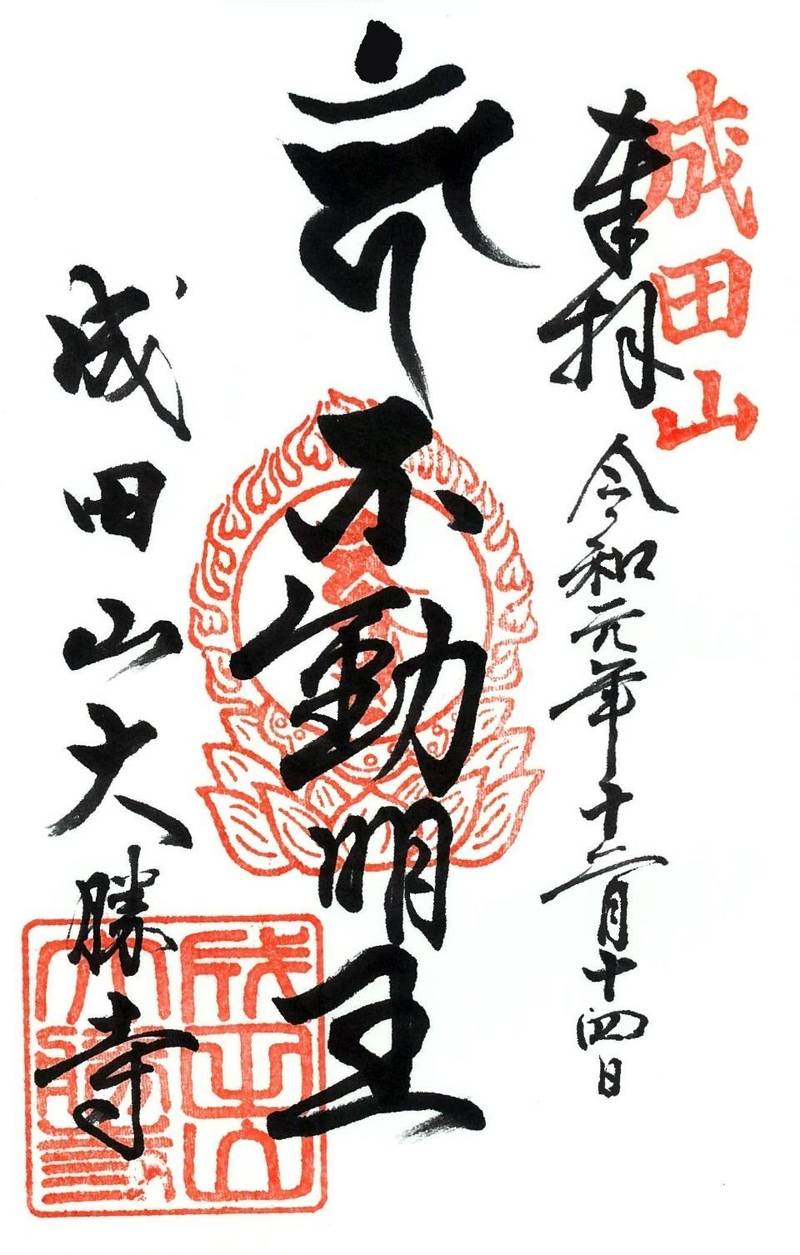 成田山
奉拝
令和元年十二月十四日
不動明王
成田山大勝寺
成田山